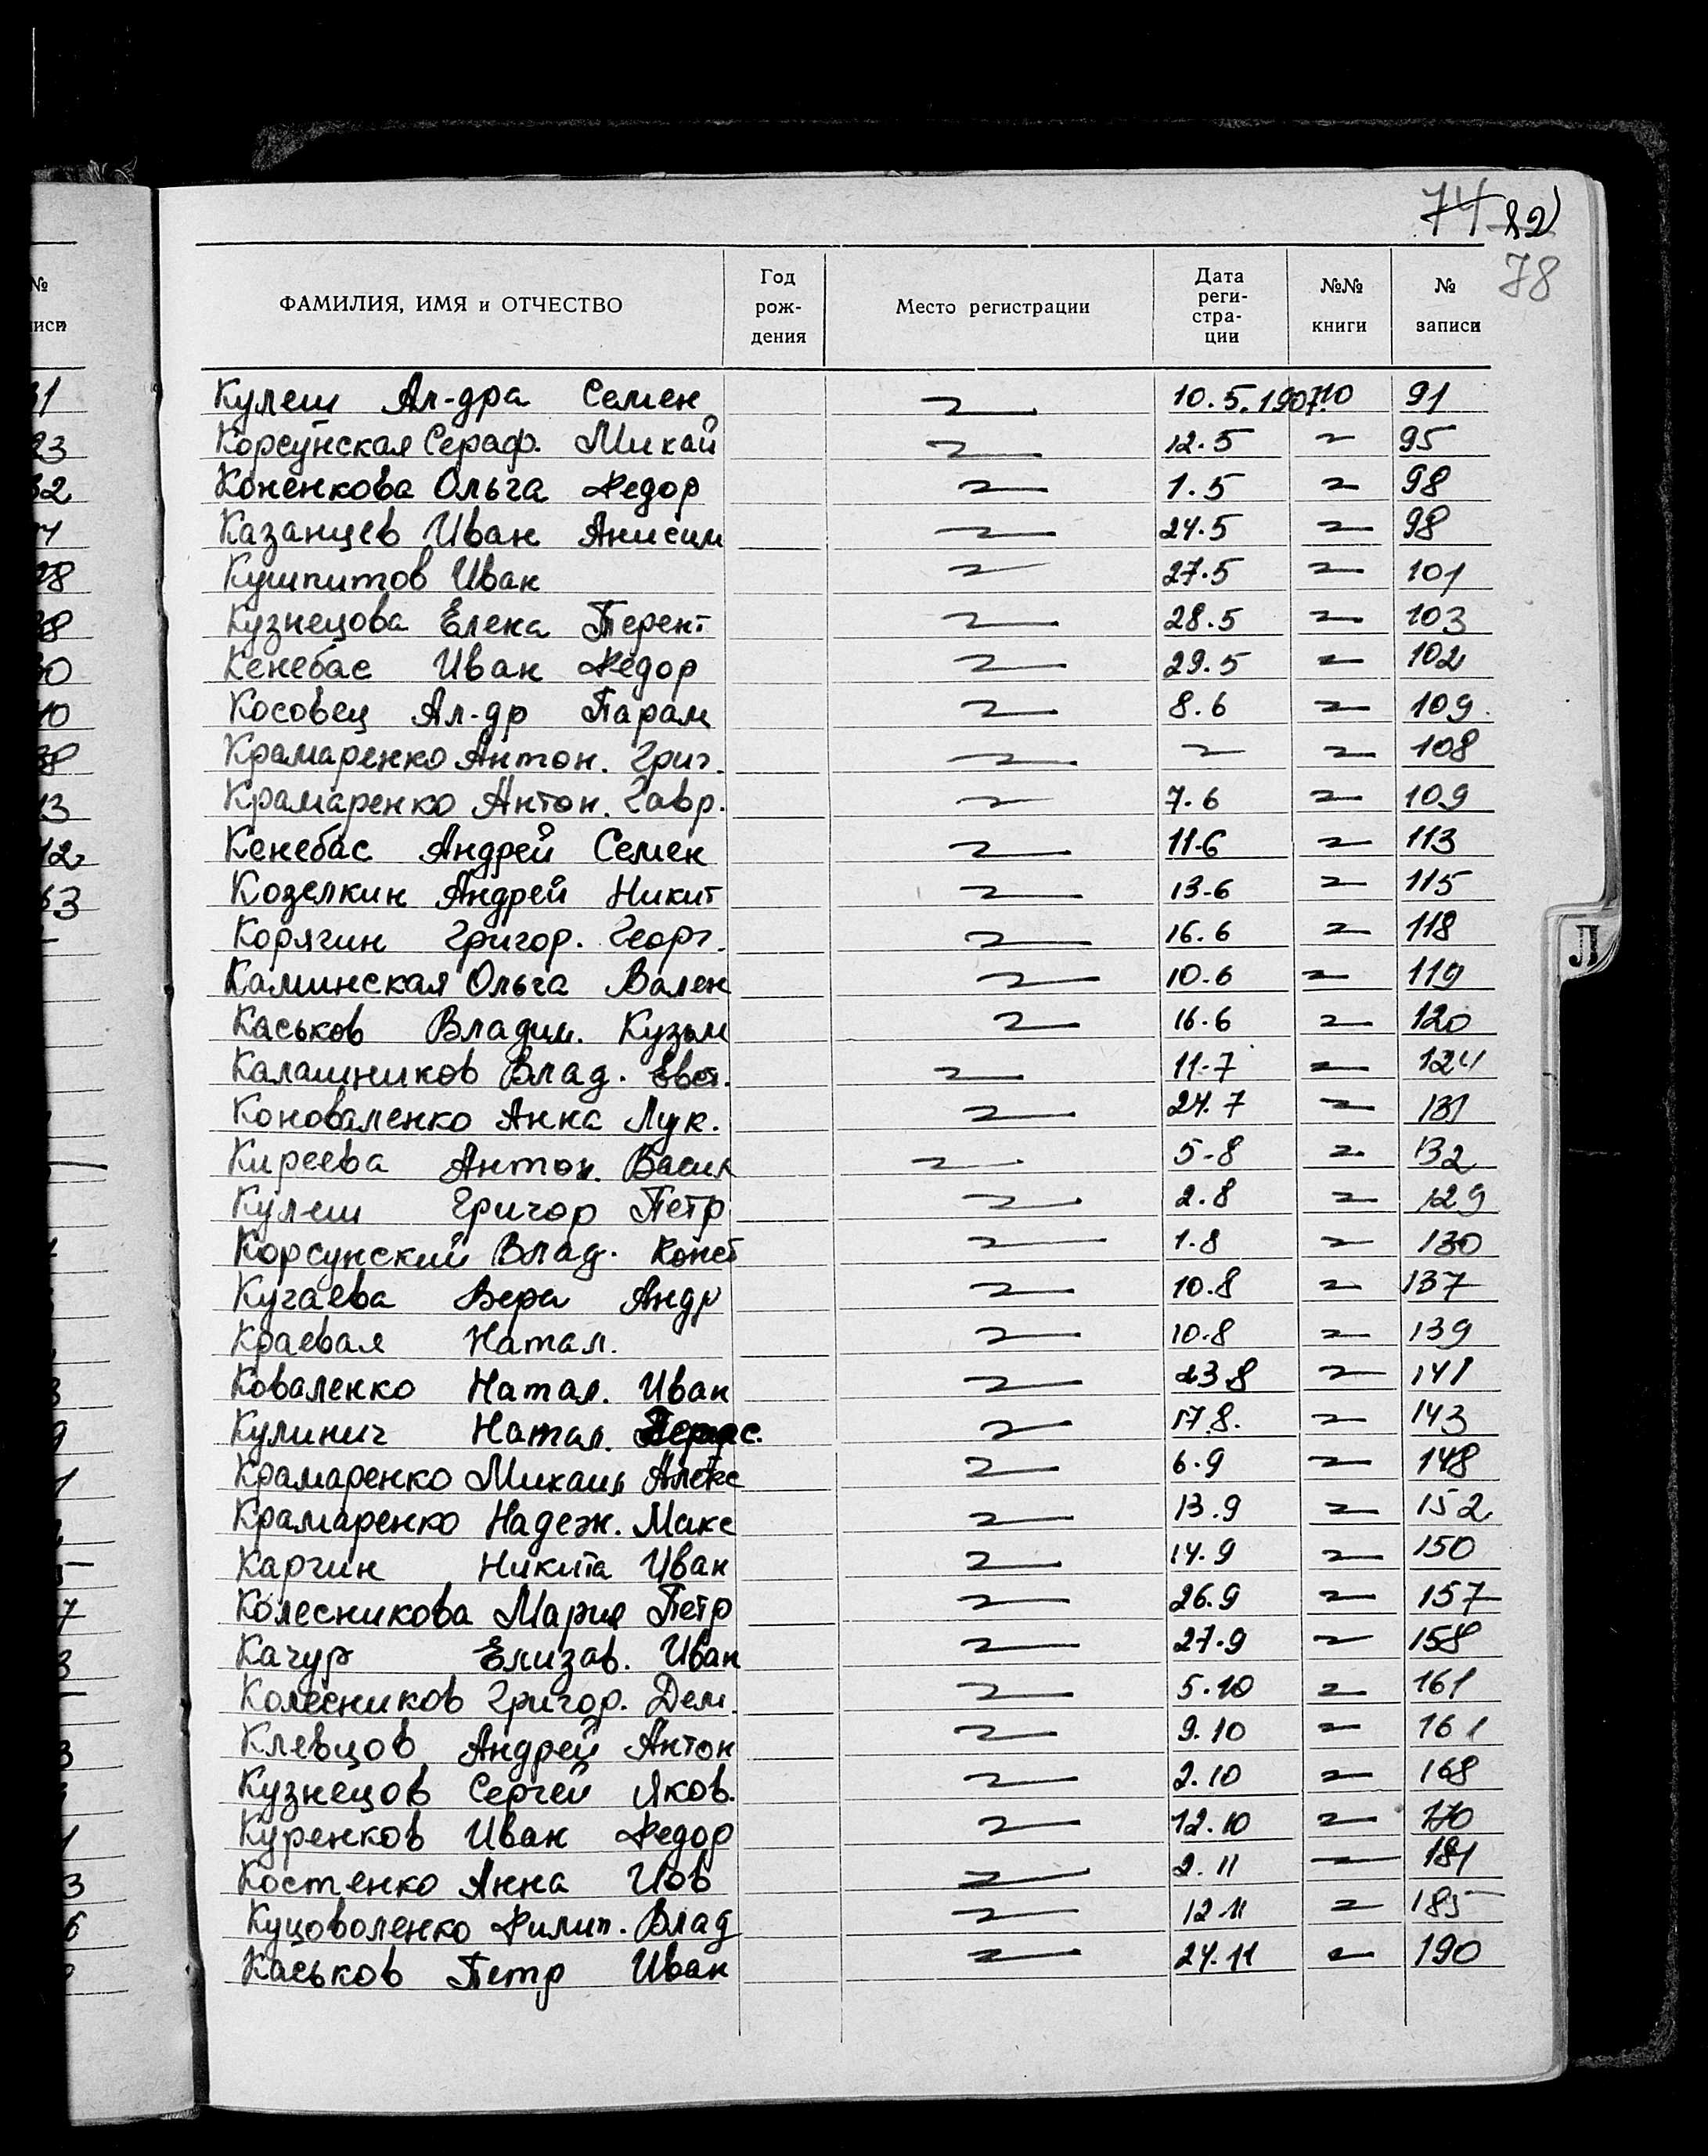 74 82
78
ФАМИЛИЯ, ИМЯ и ОТЧЕСТВО Год рож- дения Место регистрации Дата реги- стра- ции №№ книги № записи
Кулеш Ал-дра Семен 10.5.1907. 10 91
Корсунская Сераф. Михай 12.5 95
Коненкова Ольга Федор 1.5 98
Казанцев Иван Анисим 24.5 98
Кушпитов Иван 27.5 101
Кузнецова Елена Терент 28.5 103
Кенебас Иван Федор 29.5 102
Косовец Ал-др Парам 8.6 109
Крамаренко Антон. Григ. 108
Крамаренко Антон. Гавр. 7.6 109
Кенебас Андрей Семен 11.6 113
Козелкин Андрей Никит 13.6 115
Корягин Григор. Георг. 16.6 118
Каминская Ольга Вален 10.6 119
Каськов Владим. Кузьм 16.6 120
Калашников Влад. Евст. 11.7 124
Коноваленко Анна Лук. 24.7 131
Киреева Антон. Васил 5.8 132
Кулеш Григор Петр 2.8 129
Корсунский Влад. Конст 1.8 130
Кугаева Вера Андр 10.8 137
Краевая Натал. 10.8 139
Коваленко Натал. Иван 23.8 141
Кулинич Натал. 17.8. 143
Крамаренко Михаил Алекс 6.9 148
Крамаренко Надеж. Макс 13.9 152
Каргин Никита Иван 14.9 150
Колесникова Мария Петр 26.9 157
Качур Елизав. Иван 27.9 158
Колесников Григор. Дем. 5.10 161
Клевцов Андрей Антон 9.10 161
Кузнецов Сергей Яков. 2.10 168
Куренков Иван Федор 12.10 170
Костенко Анна Иов 2.11 181
Куцоволенко Филип. Влад 12.11 185
Каськов Петр Иван 24.11 190
Л